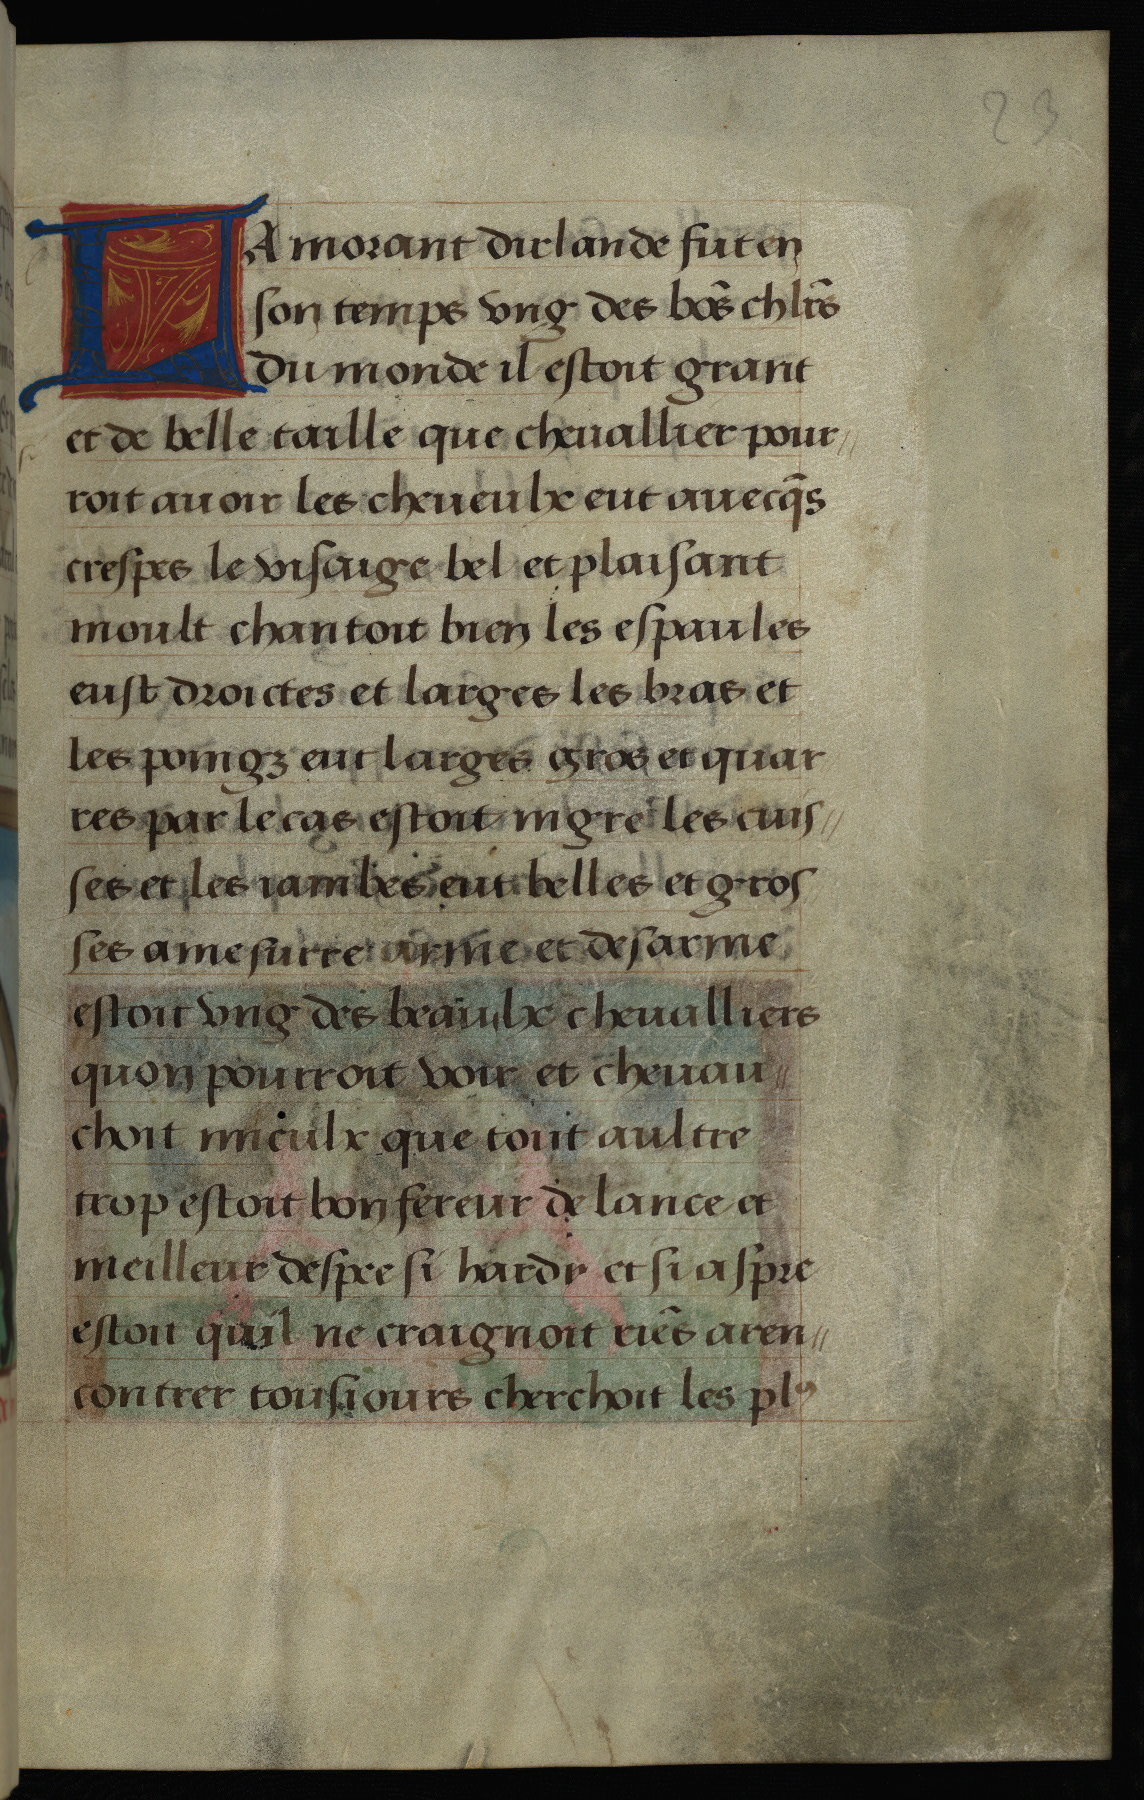 23
LA morant dirlande fut en
son temps vng des bōs chlr̄s
du monde il estoit grant
et de belle taille que cheuallier pour//
roit auoir les cheueulx eut auecq̄s
crespes le visaige bel et plaisant
moult chantoit bien les espaules
eust droictes et larges les bras et
les poingz eut larges gros et quar
res par le cas estoit mgre les cuis//
ses et les iambes eut belles et gros
ses amesurre arme et desarme
estoit vng des beaulx cheualliers
quon pourroit voir et cheuau//
choit mieulx que tout aultre
trop estoit bon fereur de lance et
meilleur despee si hardy et si aspre
estoit quil ne craignoit riēs aren//
contrer tousiours cherchoit les plꝰ